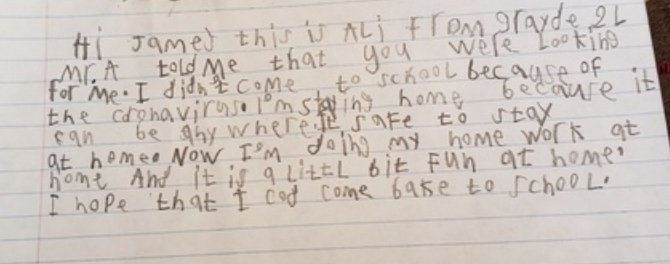 Hi James this is ALi from grayde 2L
Mr. A told me that you were Looking
for me. I didn't come to school because of
the coronavirus. I'm staying home because it
can be anywhere. It safe to stay
at home. Now I'm doing my home work at
home And it is a littL bit Fun at home.
I hope that I cod come bake to school.